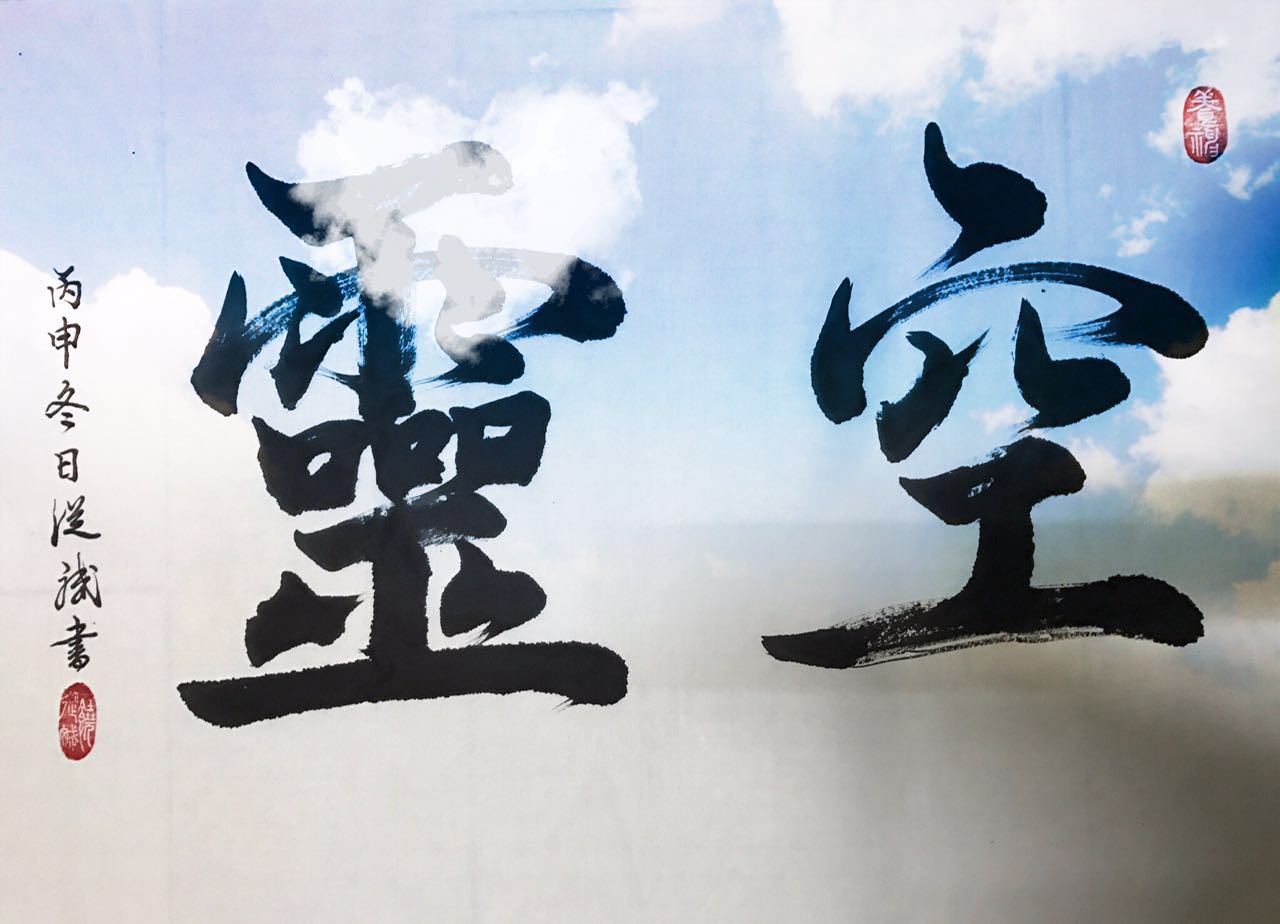 空靈
丙申冬日從書